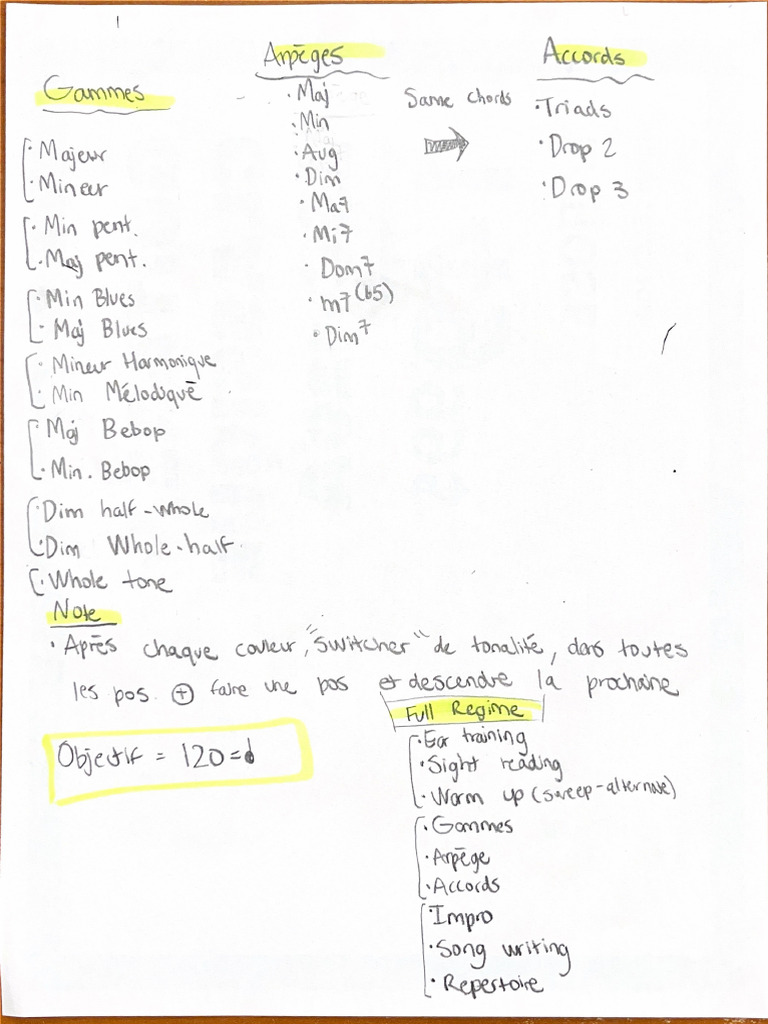 Gammes
· Majeur
· Mineur
· Min pent.
· Maj pent.
· Min Blues
· Maj Blues
· Mineur Harmonique
· Min Mélodique
· Maj Bebop
· Min. Bebop
· Dim half-whole
· Dim Whole-half
· Whole tone
Arpèges
· Maj
· Min
· Aug
· Dim
· Ma7
· Mi7
· Dom7
· m7(b5)
· Dim7
Same chords
Accords
· Triads
· Drop 2
· Drop 3
Note
· Après chaque couleur, "switcher" de tonalité, dans toutes
les pos. + faire une pos et descendre la prochaine
Objectif = 120=♩
Full Regime
· Ear training
· Sight reading
· Warm up (sweep-alternate)
· Gammes
· Arpège
· Accords
· Impro
· Song writing
· Repertoire